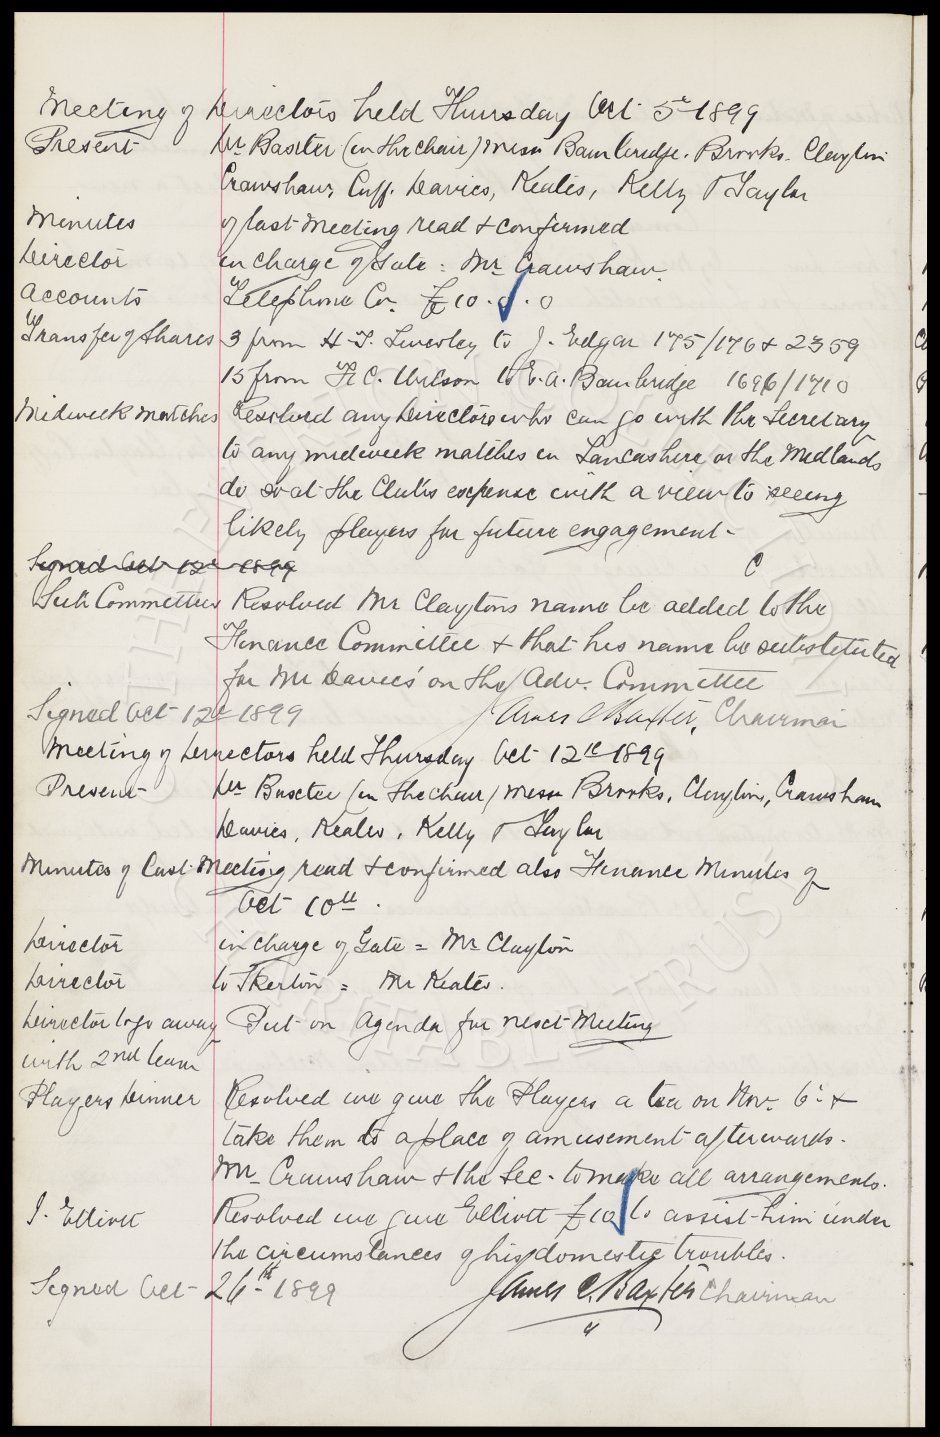 Meeting of Directors held Thursday Oct 5th 1899
Present Dr Baxter (in the chair) Messrs Bainbridge. Brooks. Clayton
Crawshaw, Cuff. Davies, Keates, Kelly & Taylor
Minutes of last Meeting read & confirmed
Director in charge of Gate = Mr Crawshaw.
Accounts Telephone Co. £10.0.0
Transfer of Shares 3 from H. T. to J. Edgar 175/176 & 2359
15 from C. Wilson to E. A. Bainbridge 1696/1710
Midweek matches Resolved any Directors who can go with the Secretary
to any midweek matches in Lancashire or the Midlands
do so at the Clubs expense with a view to seeing
likely players for future engagement.
Signed Oct 12th 1899
Sub Committees Resolved Mr Claytons name be added to the
Finance Committee & that his name be substituted
for Mr Davies' on the Adv. Committee
Signed Oct 12th 1899 James C Baxter, Chairman
Meeting of Directors held Thursday Oct 12th 1899
Present Dr Baxter (in the chair) Messrs Brooks, Clayton, Crawshaw
Davies, Keates, Kelly & Taylor
Minutes of Last Meeting read & confirmed also Finance Minutes of
Oct 10th.
Director in charge of Gate = Mr Clayton
Director to Skerton = Mr Keates.
Director to go away Put on Agenda for next Meeting
with 2nd team
Players Dinner Resolved we give the Players a tea on Nov. 6th &
take them to a place of amusement afterwards.
Mr Crawshaw & the Sec. to make all arrangements.
J. Elliott Resolved we give Elliott £10 to assist him under
the circumstances of his domestic troubles.
Signed Oct 26th 1899 James C. Baxter Chairman